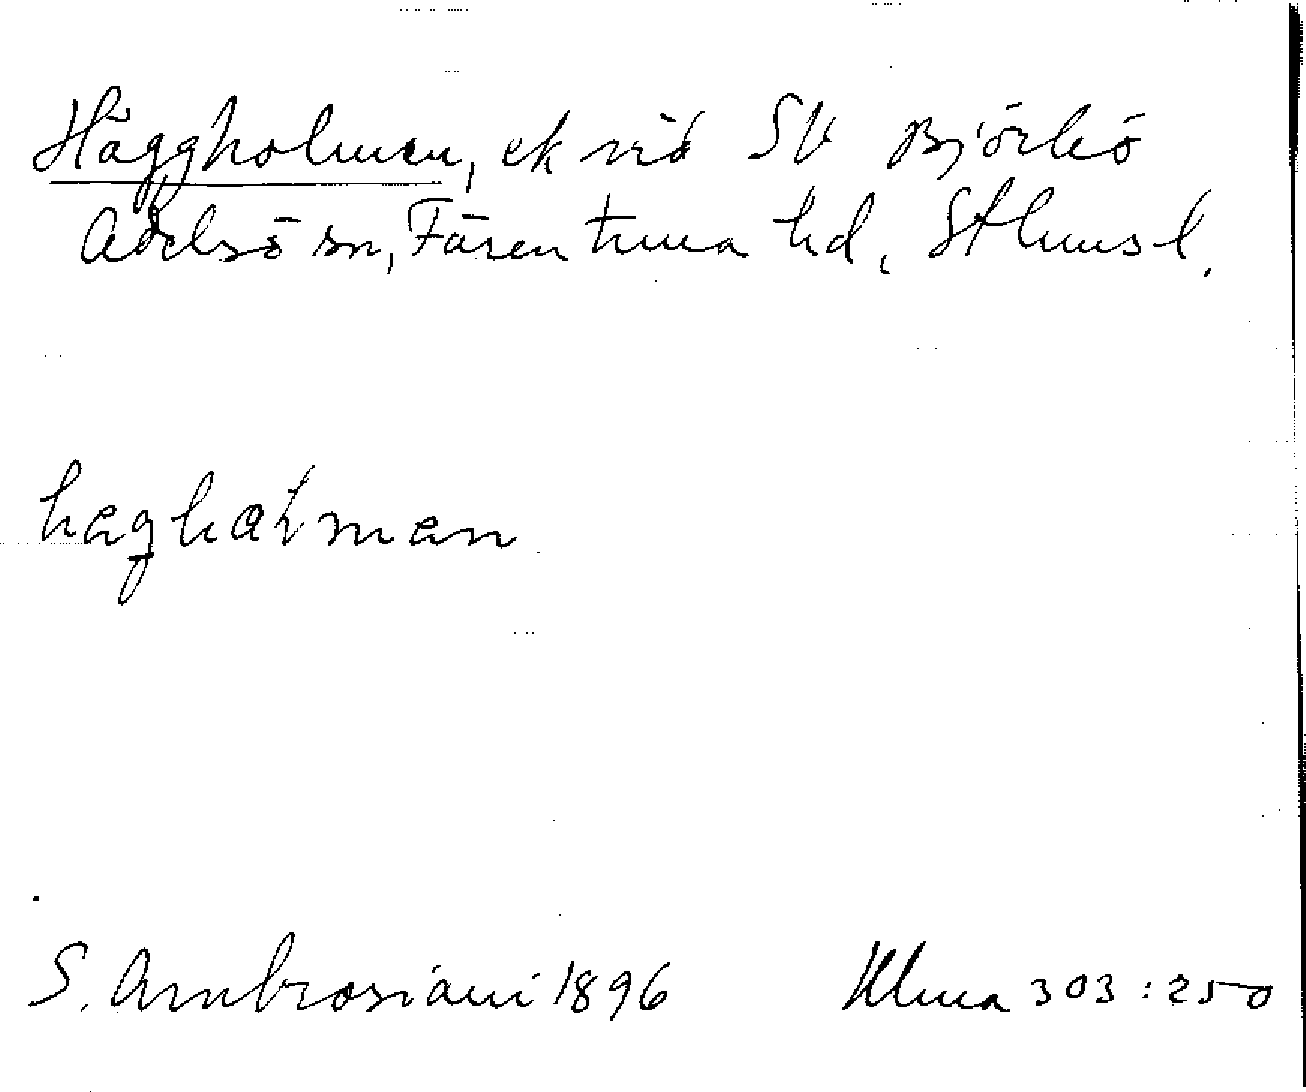 Häggholmen, ek vid SV Björkö
Adelsö sn, Färentuna hd, Sthms l.
hægholman
S. Ambrosiani 1896 Ulma 303:250